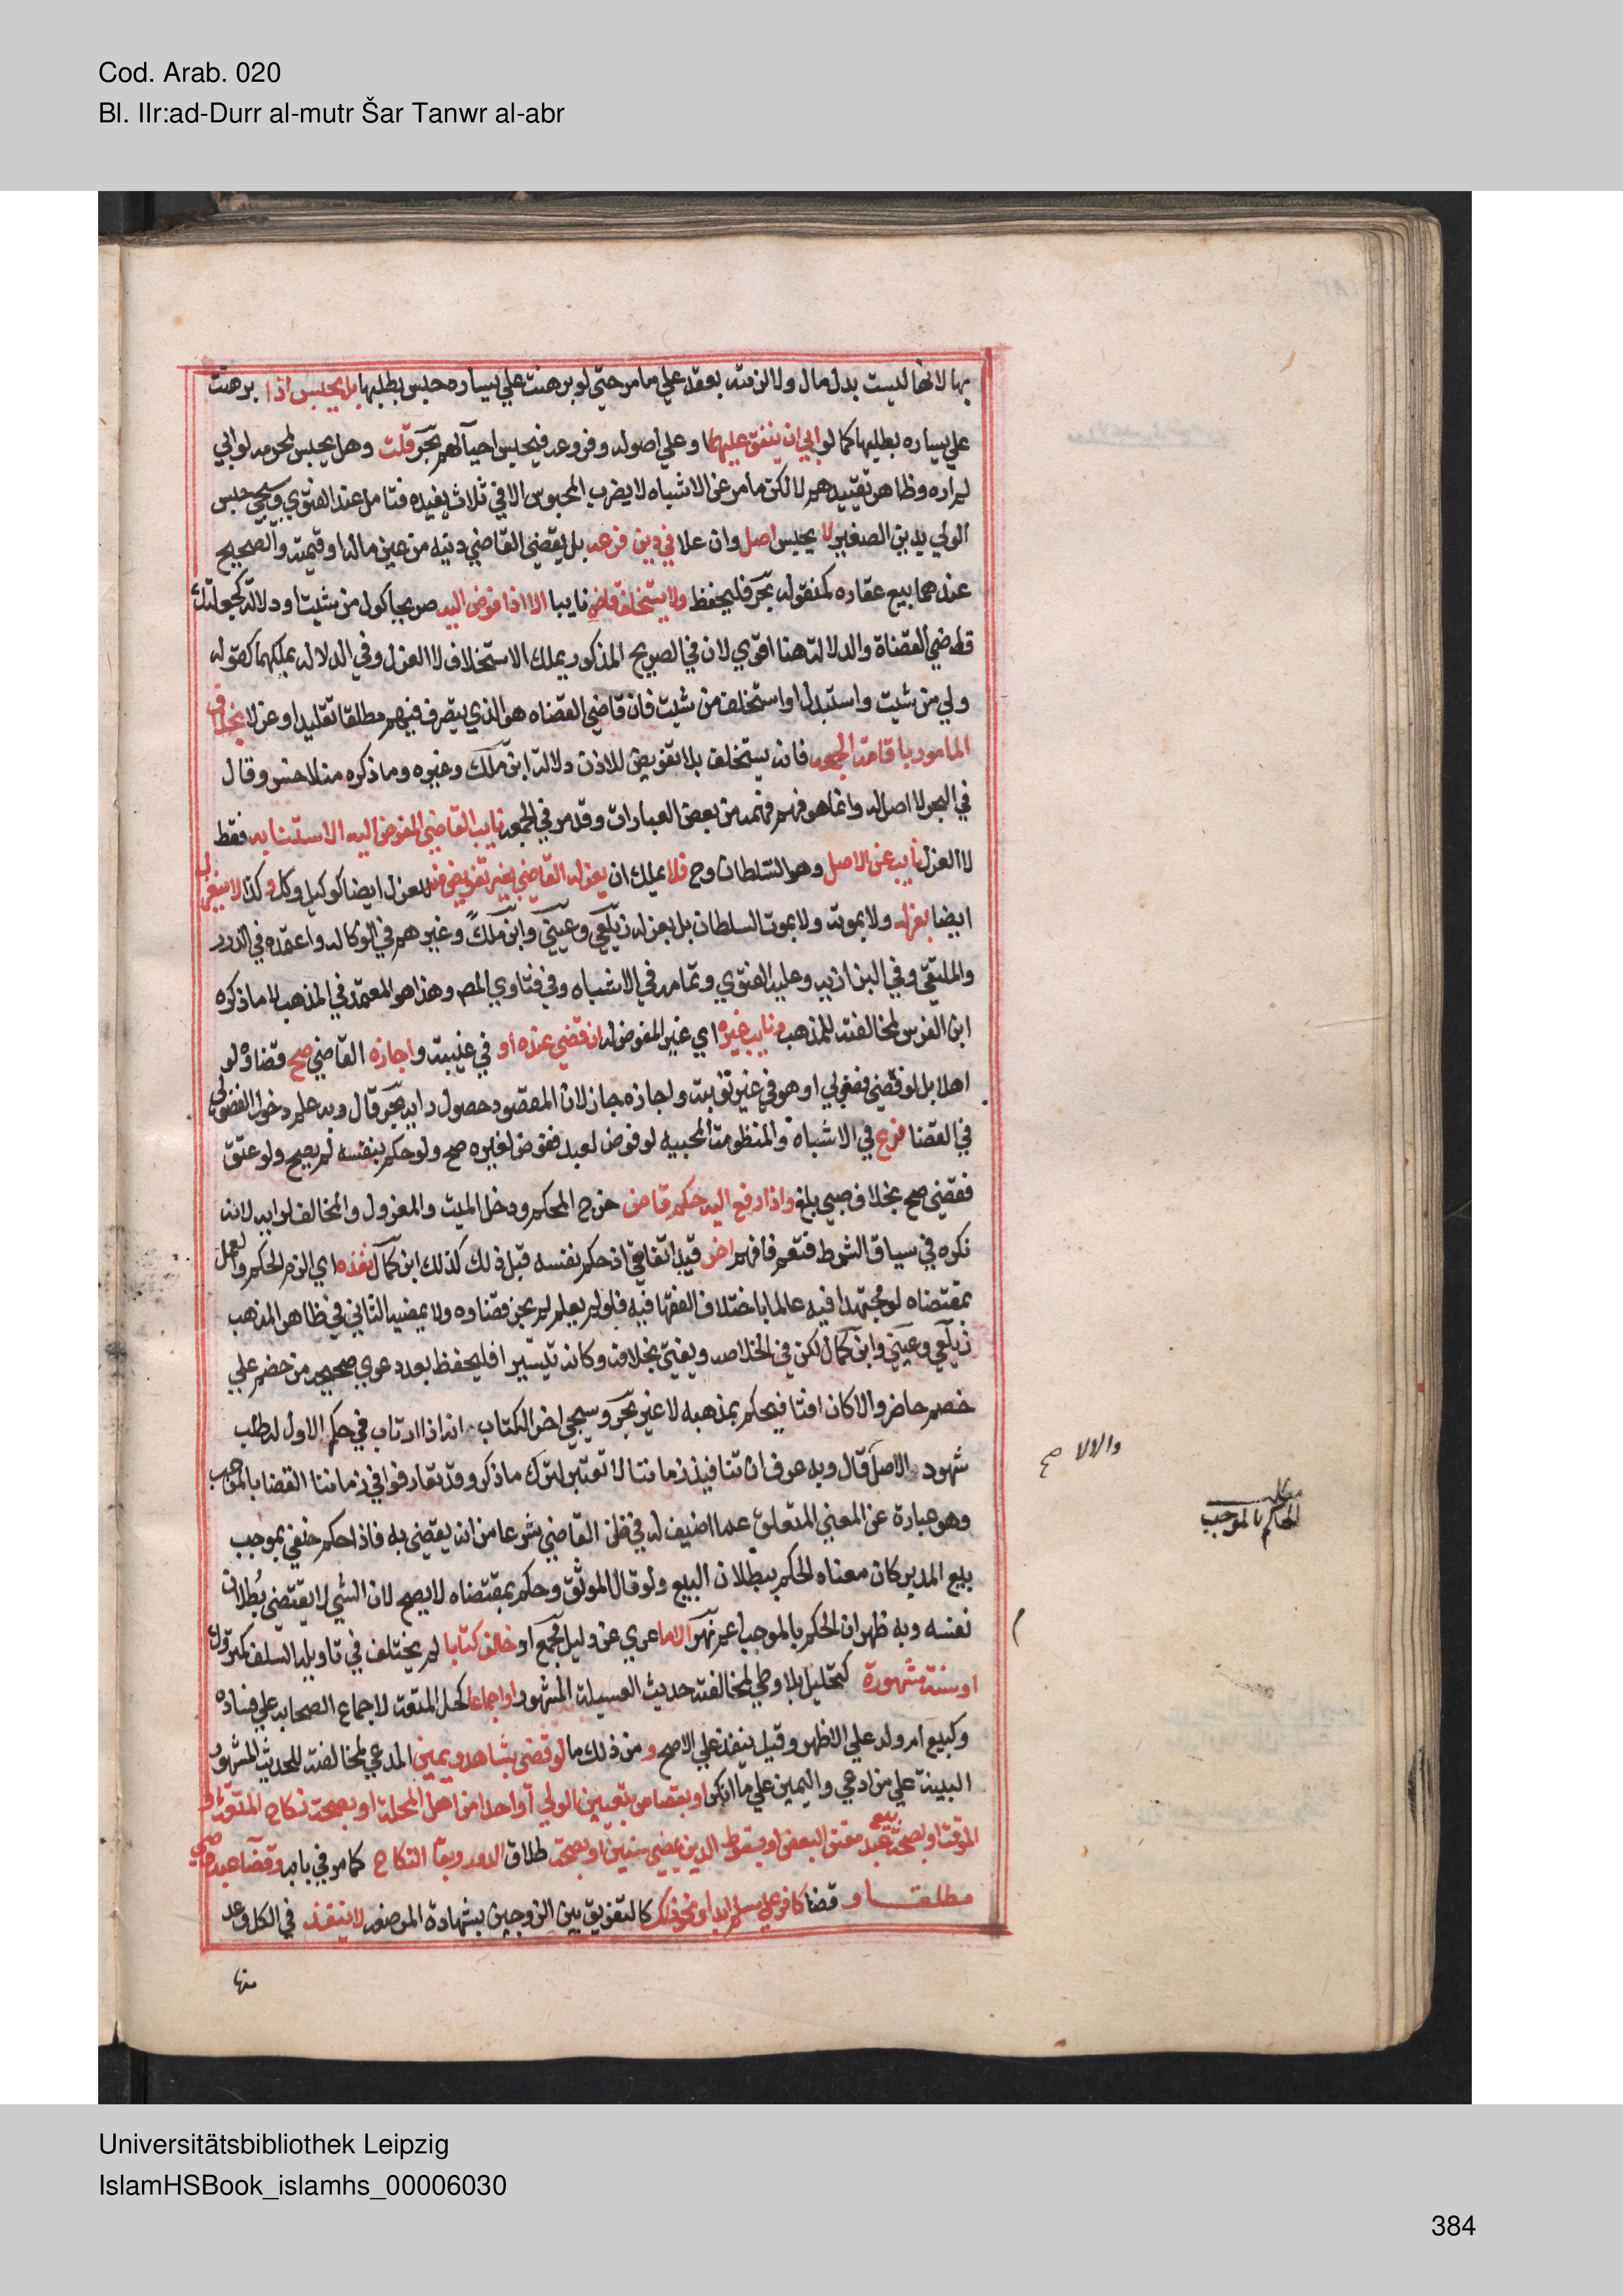 Cod. Arab. 020
Bl. IIr:ad-Durr al-mutr Šar Tanwr al-abr
بها لانها ليست بدل مال ولا لزمته بعقد علي ما مر حتي لو برهنت علي يساره حبس بطلبها بل يحبس اذا برهنت
علي يساره بطلبها كما لو ابي ان ينفق عليهما وعلي اصوله وفروعه فيحبس احياً لهم بحر قلت وهل يحبس لمحرمه لو ابي
لم اره وظاهر تقييدهم لا لكن ما مر عن الاشباه لا يضرب المحبوس الا في ثلاث يفيده فتامل عند الفتوي وسيجي حبس
الولي بدين الصغير لا يحبس اصل وان علا في دين فرعه بل يقضي القاضي دينه من عين ماله او قيمته والصحيح
عندهما بيع عقاره كمنقوله بحر فليحفظ ولا يستخلف قاض نايبا الا اذا فوض اليه صريحا كول من شيت او دلالة كجعلتك
قاضي القضاة والدلالة هنا اقوي لان في الصريح المذكور يملك الاستخلاف لا العزل وفي الدلاله يملكهما كقوله
ولي من شيت واستبدل او استخلف من شيت فان قاضي القضاه هو الذي يتصرف فيهم مطلقا تقليدا وعزلا بخلاف
المامور باقامة الجمعه فانه يستخلف بلا تفويض للاذن دلالة ابن ملك وغيره وما ذكره منلا خسرو قال
في البحر لا اصل له وانما هو فهم فهمه من بعض العبارات وقد مر في الجمعه نايب القاضي المفوض اليه الاستنابه فقط
لا العزل نايب عن الاصل وهو السلطان وح فلا يملك ان يعزله القاضي بغير تفويض منه للعزل ايضا كوكيل وكل وكذا لا ينعزل
ايضا بعزله ولا بموته ولا بموت السلطان بل بعزله زيلعي وعيني وابن ملك وغيرهم في الوكاله واعتمده في الدرر
والملتقي وفي البزازيه وعليه الفتوي وتمامه في الاشباه وفي فتاوي المص وهذا هو المعتمد في المذهب لا ما ذكره
ابن الغرس لمخالفته للمذهب ونايب غيره اي غير المفوض له ان قضي عنده او في غيبته واجازه القاضي صح قضاؤه لو
اهلا بل لو قضي فضولي او هو في غير نوبته واجازه جاز لان المقصود حصول رايه بحر قال وبه علم دخول الفضولي
في القضا فرع في الاشباه والمنظومة المحبيه لو فوض لعبد ففوض لغيره صح ولو حكم بنفسه لم يصح ولو عتق
فقضي صح بخلاف صبي بلغ واذا رفع اليه حكم قاض خرج المحكم ودخل الميت والمعزول والمخالف لرايه لانه
نكره في سياق الشرط فتعم فافهم اخر قيد اتفاقي اذ حكم نفسه قبل ذلك كذلك ابن كمال نفذه اي الزم الحكم والعمل
بمقتضاه لو مجتهدا فيه عالما باختلاف الفقها فيه فلو لم يعلم لم يجز قضاوه ولا يمضيه الثاني في ظاهر المذهب
زيلعي وعيني وابن كمال لكن في الخلاصه ويفتي بخلافه وكانه تيسيرا فليحفظ بعد دعوي صحيحه من خصم علي
خصم حاضر والا كان افتا فيحكم بمذهبه لا غير بحر وسيجي اخر الكتاب انه اذا ارتاب في حكم الاول له طلب
شهود الاصل قال وبه عرف ان تنافيذ زماننا لا تعتبر لترك ما ذكر وقد تعارفوا في زماننا القضا بالموجب
وهو عبارة عن المعني المتعلق بما اضيف له في ظن القاضي شرعا من انه يقضي به فاذا حكم حنفي بموجب
بيع المدبر كان معناه الحكم ببطلان البيع ولو قال الموثق وحكم بمقتضاه لا يصح لان الشي لا يقتضي بطلان
نفسه وبه ظهر ان الحكم بالموجب اعم نهر الا ما عري عن دليل مجمع او خالف كتابا لم يختلف في تاويله السلف كمتروك
او سنة مشهورة كتحليل بلا وطي لمخالفته حديث العسيلة المشهور او اجماعا كحل المتعة لاجماع الصحابه علي فساده
وكبيع ام ولد علي الاظهر وقيل ينفذ علي الاصح ومن ذلك ما لو قضي بشاهد ويمين المدعي لمخالفته للحديث المشهور
البينة علي من ادعي واليمين علي من انكر او بقصاص بتعيين الولي واحدا من اهل المحلة او بصحة نكاح المتعة او
الموقت او بصحة بيع عبد معتق البعض او بسقوط الدين بمضي سنين او بصحة طلاق الدور وبقا النكاح كما مر في بابه وقضا عبد وصبي
مطلقا وقضا كافر علي مسلم ابدا ونحو ذلك كالتفريق بين الزوجين بشهادة المرضعه لا ينفذ في الكل وعد
منها
والالا صح
مطلب
الحكم بالموجب
Universitätsbibliothek Leipzig
IslamHSBook_islamhs_00006030
384